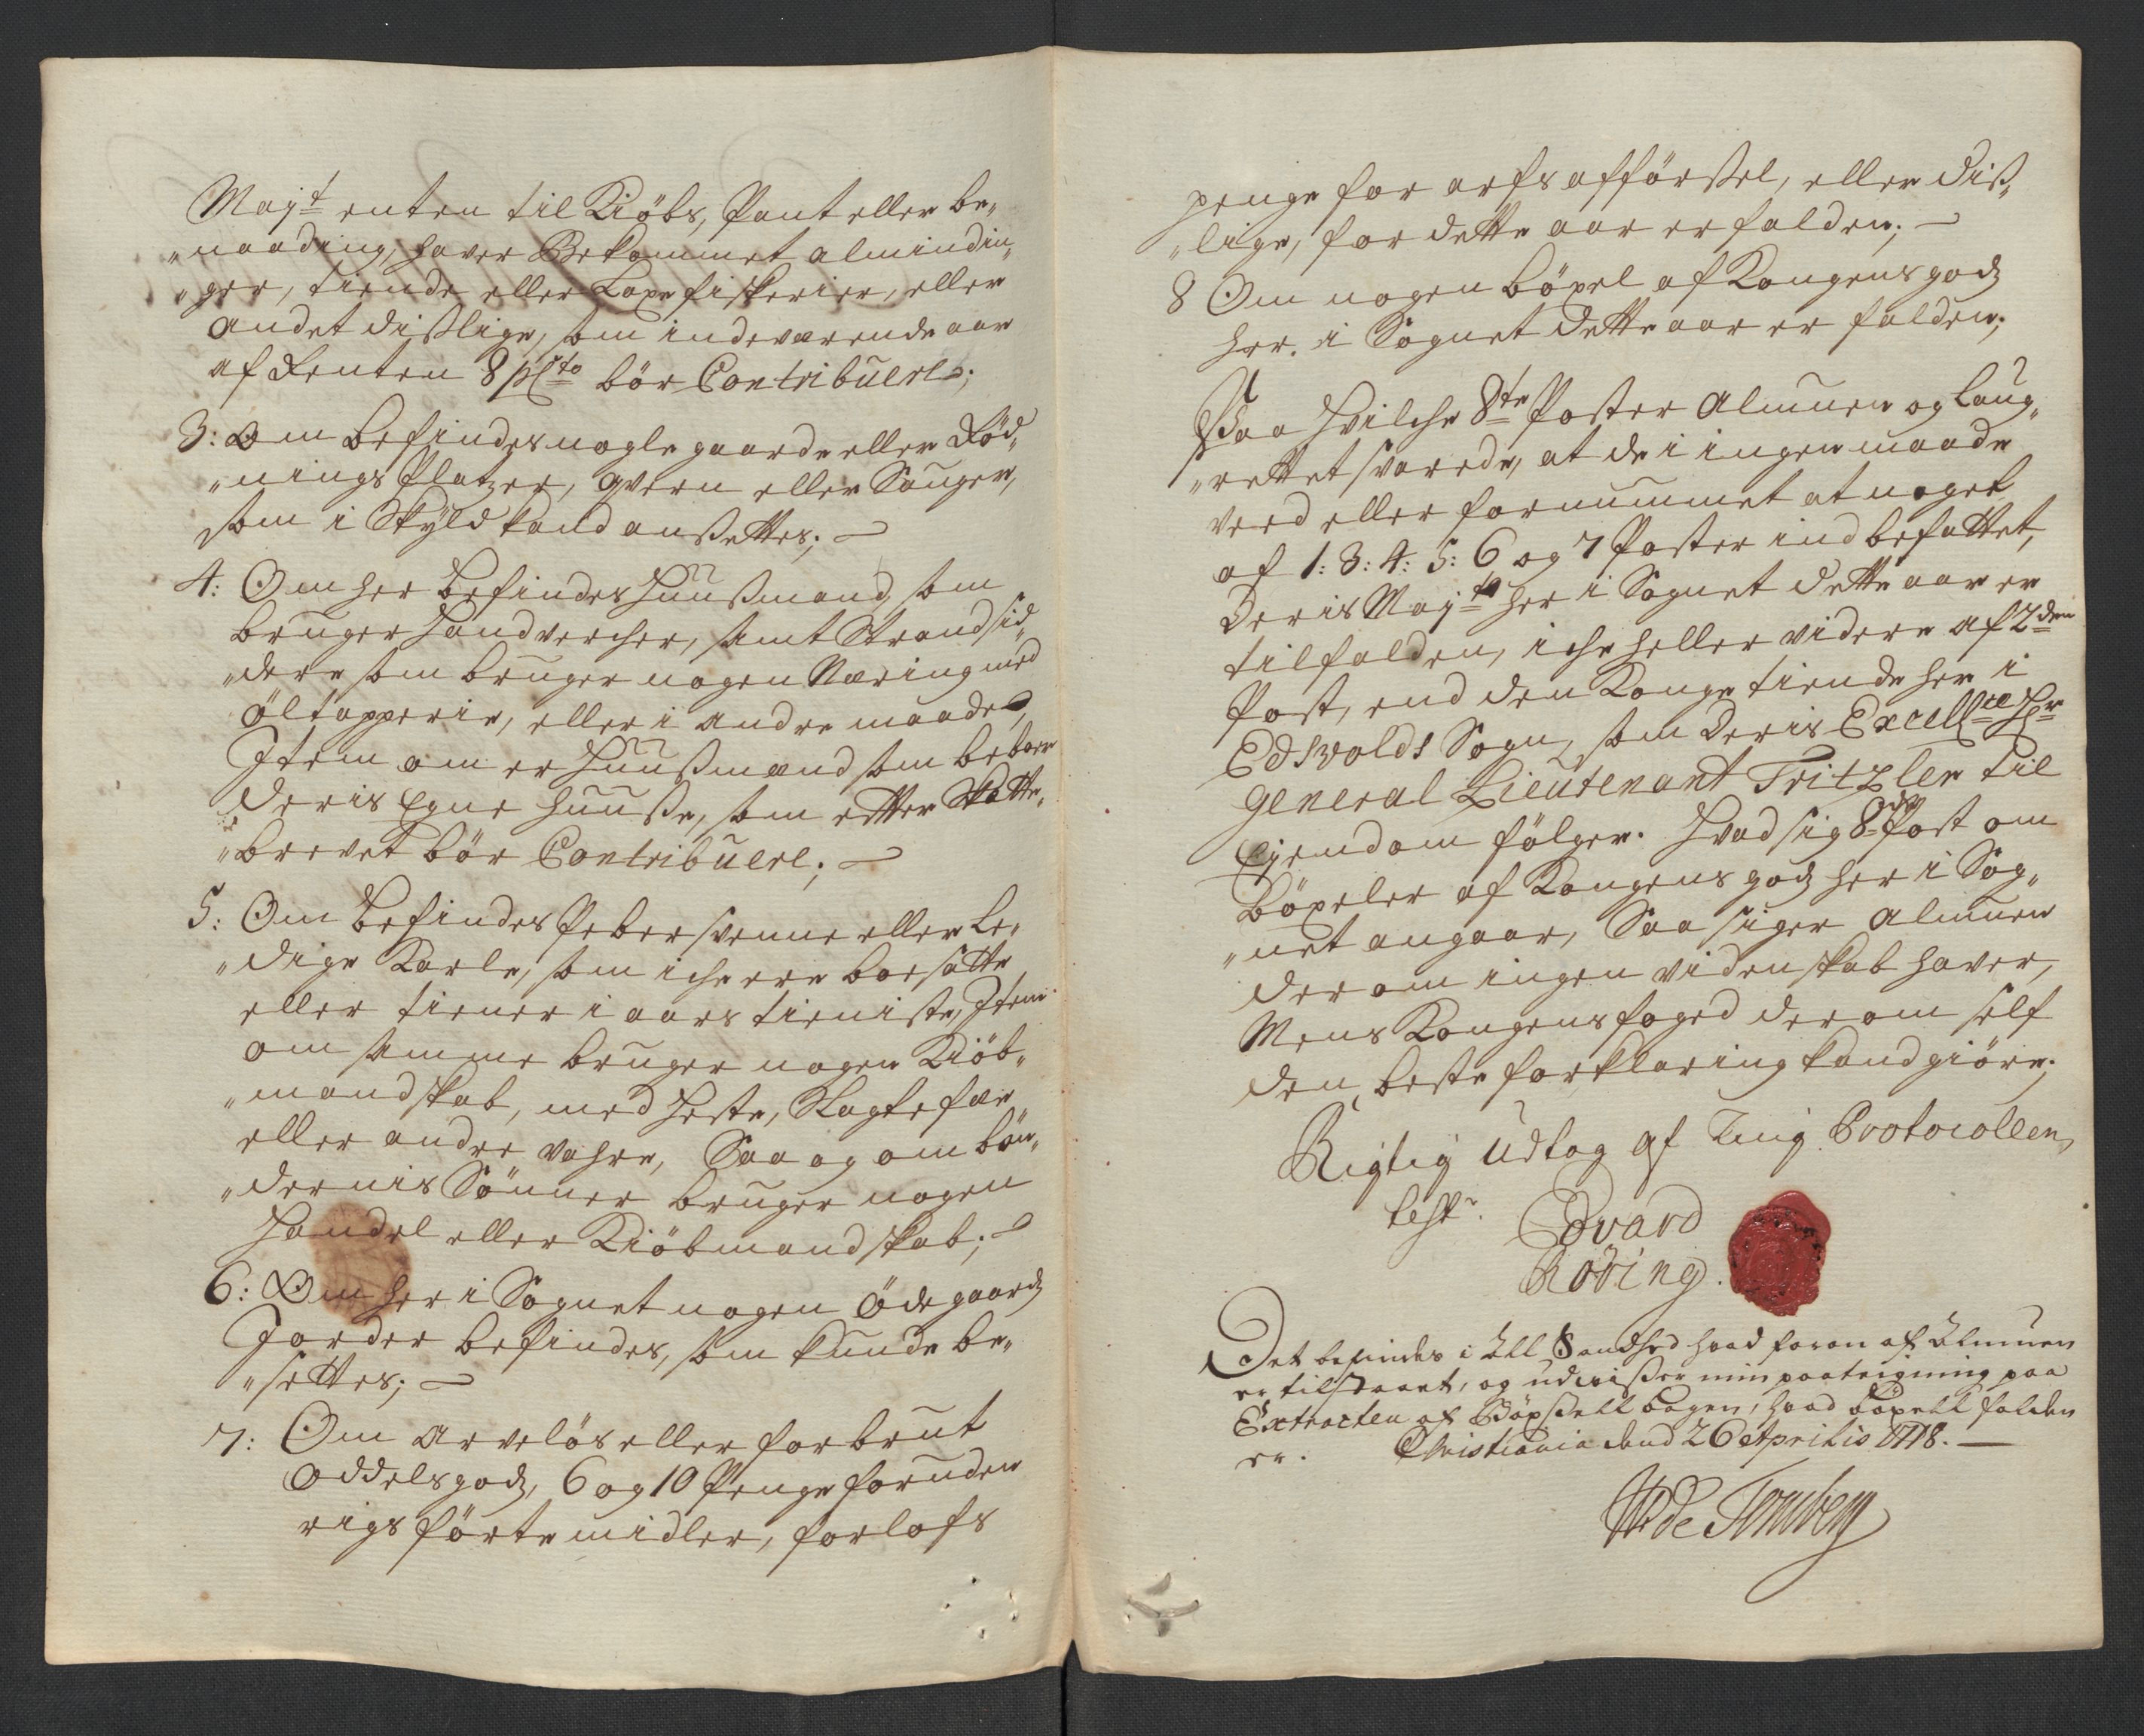 Majt enten til Kiöbs, Pant eller be„
„naading, haver Bekommet almindin„
„ger, tiende eller Laxe fiskerier, eller
andet dislige, som indeværende aar
af Renten 8 pCto bör Contribuere;
3: Om befindes nogle gaarde eller Röd„
„nings Platzer, qvern eller Sauger,
som i Skyld kand ansættes; —
4: Om her befindes Huusmænd, som
bruger Handvercher, samt Strandsid„
„dere som bruger nogen Næring med
Öltapperie, eller i andre maader,
Item om er Huusmænd som beboer
deris Egne huuse, som efter Skatte„
„brevet bör Contribuere; —
5: Om befindes Pebersvenne eller Le„
„dige Karle, som iche ere boesatte
eller tiener i aars tieniste, Item
om samme bruger nogen Kiöb„
„mandskab, med Heste, Slagtefæe
eller andre vahre, Saa og om bön„
„dernis Sönner bruger nogen
Handel eller Kiöbmandskab; —
6: Om her i Sognet nogen Ödegaards
Jorder befindes, som kunde be„
„settes; —
7: Om Arvelös eller forbrut
Oddelsgods, 6 og 10 Penge foruden
rigs förte midler, forlofs
penge for arfs afförsel, eller dis„
„lige, for dette aar er falden; —
8 Om nogen böxel af Kongens gods
her i Sognet dette aar er falden;
Paa Hvilche 8te Poster Almuen og Laug„
„rettet svarede, at de i ingen maade
veed eller fornummet at noget
af 1: 3: 4: 5: 6 og 7 Poster indbefattet,
Deris Majts her i Sognet dette aar er
tilfalden, iche heller videre af 2den
Post, end den Konge tiende her i
Edsvolds Sogn, som Deris Excellce Hr
General Lieutenant Tritzler til
Ejendom fölger. Hvad sig 8de Post om
Böxeler af Kongens gods her i Sog„
„net angaar, Saa siger Almuen
derom ingen videnskab haver,
Mens Kongens foged derom self
den beste forklaring kand giöre;
Rigtig Udtog af Ting Protocollen,
test.
Edvard
Röring.
Det befindes i All Sandhed hvad foran af Almuen
er tilstaaet, og udviser min paategning paa
Extracten af Böxsell bogen, hvad böxell falden
er. Christiania dend 26 Aprilis 1718. —